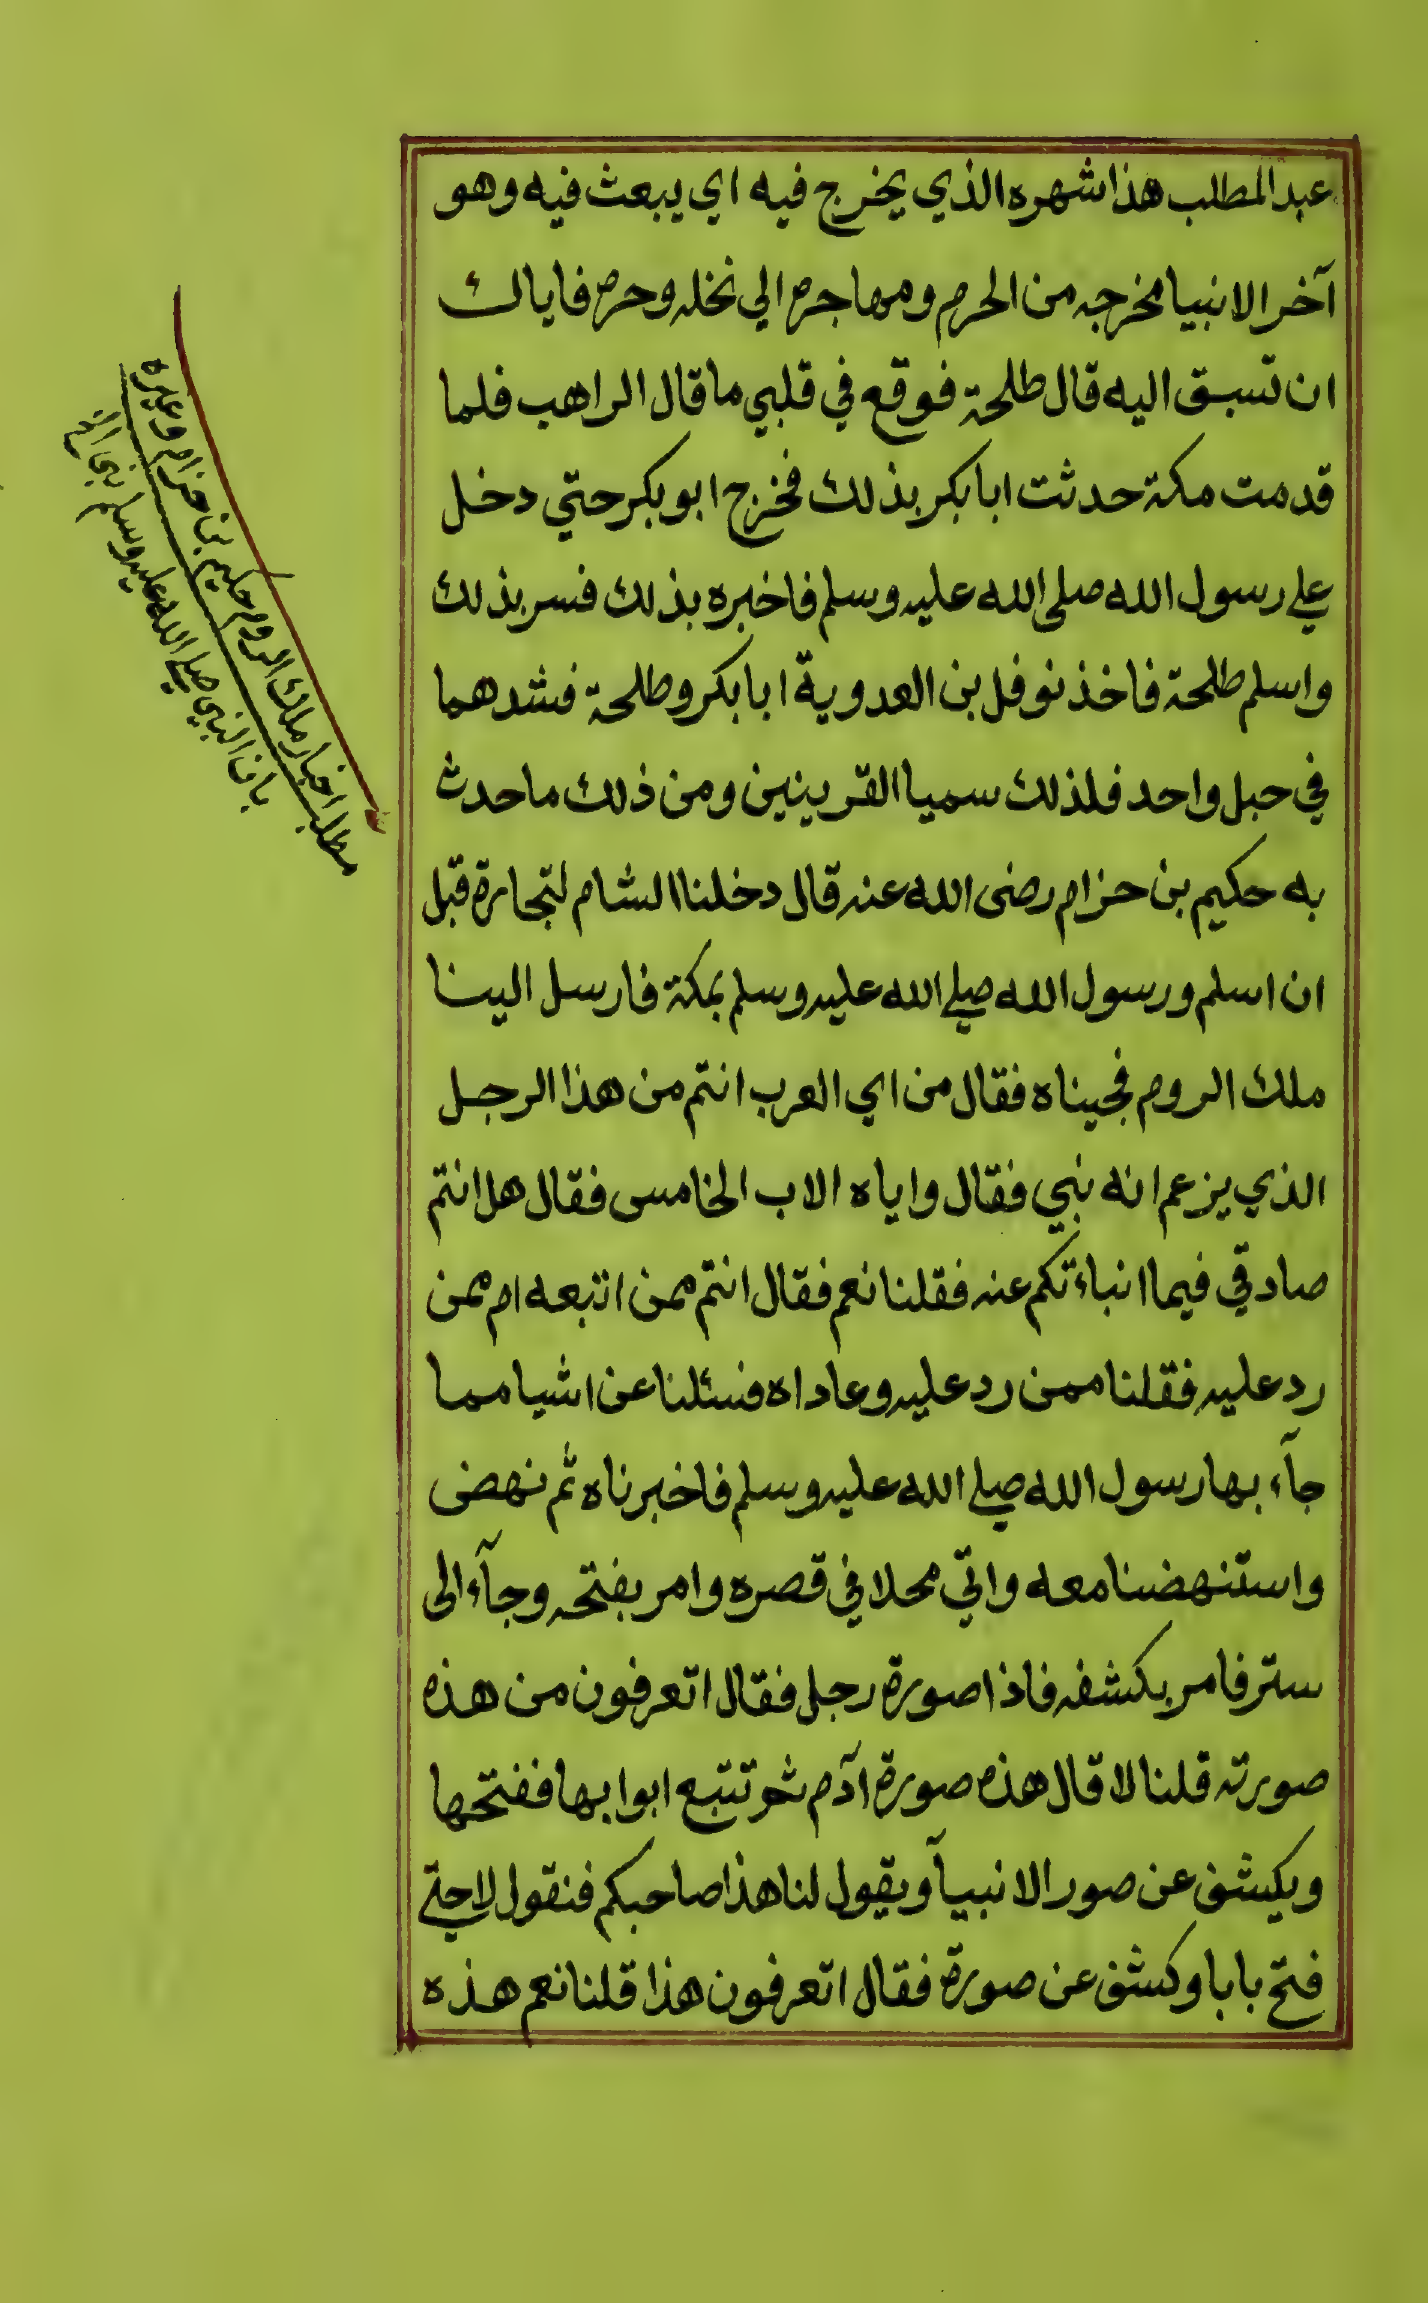 عبد المطلب هذا شهره الذي يخرج فيه اي يبعث فيه وهو
آخر الانبيا مخرجه من الحرم ومهاجره الي نخله وحره فاياك
ان تسبق اليه قال طلحة فوقع في قلبي ما قال الراهب فلما
قدمت مكة حدثت ابا بكر بذلك فخرج ابو بكر حتي دخل
علي رسول الله صلى الله عليه وسلم فاخبره بذلك فسر بذلك
واسلم طلحة فاخذ نوفل بن العدوية ابا بكر وطلحة فشدهما
في حبل واحد فلذلك سميا القرينين ومن ذلك ما حدث
به حكيم بن حزام رضى الله عنه قال دخلنا الشام لتجارة قبل
ان اسلم ورسول الله صلي الله عليه وسلم بمكة فارسل الينا
ملك الروم فجيناه فقال من اي العرب انتم من هذا الرجل
الذي يزعم انه نبي فقال واياه الاب الخامس فقال هل انتم
صادقي فيما انباءتكم عنه فقلنا نعم فقال انتم ممن اتبعه ام ممن
رد عليه فقلنا ممن رد عليه وعاداه فسئلنا عن اشيا مما
جآء بها رسول الله صلي الله عليه وسلم فاخبرناه ثم نهض
واستنهضنا معه واتي محلا في قصره وامر بفتحه وجآء الى
ستر فامر بكشفه فاذا صورة رجل فقال اتعرفون من هذه
صورته قلنا لا قال هذه صورة آدم ثم تتبع ابوابها ففتحها
ويكشف عن صور الانبيآ ويقول لنا هذا صاحبكم فنقول لا حتي
فتح بابا وكشف عن صورة فقال اتعرفون هذا قلنا نعم هذه
مطلب اخبار ملك الروم حكيم بن حزام وغيره
بان النبي صلي الله عليه وسلم